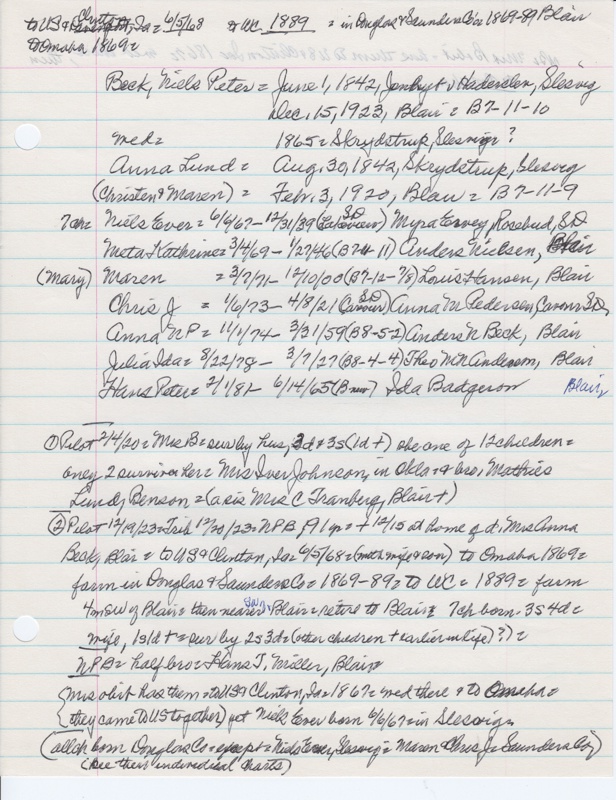 to US & Clinton, Ia = 6/5/68 to WC 1889 = in Douglas & Saunders Co's 1869-89, Blair
to Omaha 1869 =
Beck, Niels Peter = June 1, 1842, v Haderslev, Slesvig
Dec. 15, 1923, Blair = B7-11-10
med = 1865 = Skrydstrup, Slesvig?
Anna Lund = Aug. 30, 1842, Skrydstrup, Slesvig
(Christen & Maren) = Feb. 3, 1920, Blair = B7-11-9
7ch = Niels Ever = 6/6/67 - 12/31/39 (Lakeview SD) Myra Ervey, Rosebud, S.D
Meta Kathrine = 3/4/69 - 1/27/46 (B7-11 11) Anders Nielsen, Blair
(Mary) Maren = 3/7/71 - 12/10/00 (B7-12-7/8) Louis Hansen, Blair
Chris J = 1/6/73 - 4/8/21 (Carour SD) Anna M Pedersen, Carour S.D,
Anna NP = 11/1/74 - 3/31/59 (B8-5-2) Anders N Beck, Blair
Julia Ida = 8/22/78 - 3/7/27 (B8-4-4) Theo Anderson, Blair
Hans Peter = 2/1/81 - 6/14/65 (B new) Ida Badgerow Blair,
① Pilot 2/4/20 = Mrs B = sur by hus, 3d & 3s (1d +) she one of 12 children =
only 2 survive her = Mrs Iver Johnson, in Okla & bro, Mathies
Lund, Benson = (a sis Mrs C Tranberg, Blair +)
② Pilot 12/19/23 = Trib 12/20/23 = NPB, 81 yr = + 12/15 at home of d, Mrs Anna
Beck, Blair = to US & Clinton, Ia = 6/5/68 = (with wife & son) to Omaha 1869 =
farm in Douglas & Saunders Co = 1869-89 = to WC = 1889 = farm
4m SW of Blair = then nearer SW, Blair = retire to Blair = 7ch born = 3s 4d =
wife, 1s 1d + = sur by 2s 3d = (other children + earlier in life?) =
NPB = half bro = Hans T. Miller, Blair
(Mrs obit has them = to US & Clinton, Ia = 1867 = med there & to Omaha =
they came to US together) yet Niels Ever born 6/6/67 in Slesvig
(all ch born Douglas Co = except = Niels Ever, Slesvig = Maren & Chris J = Saunders Co)
(see their individual charts)